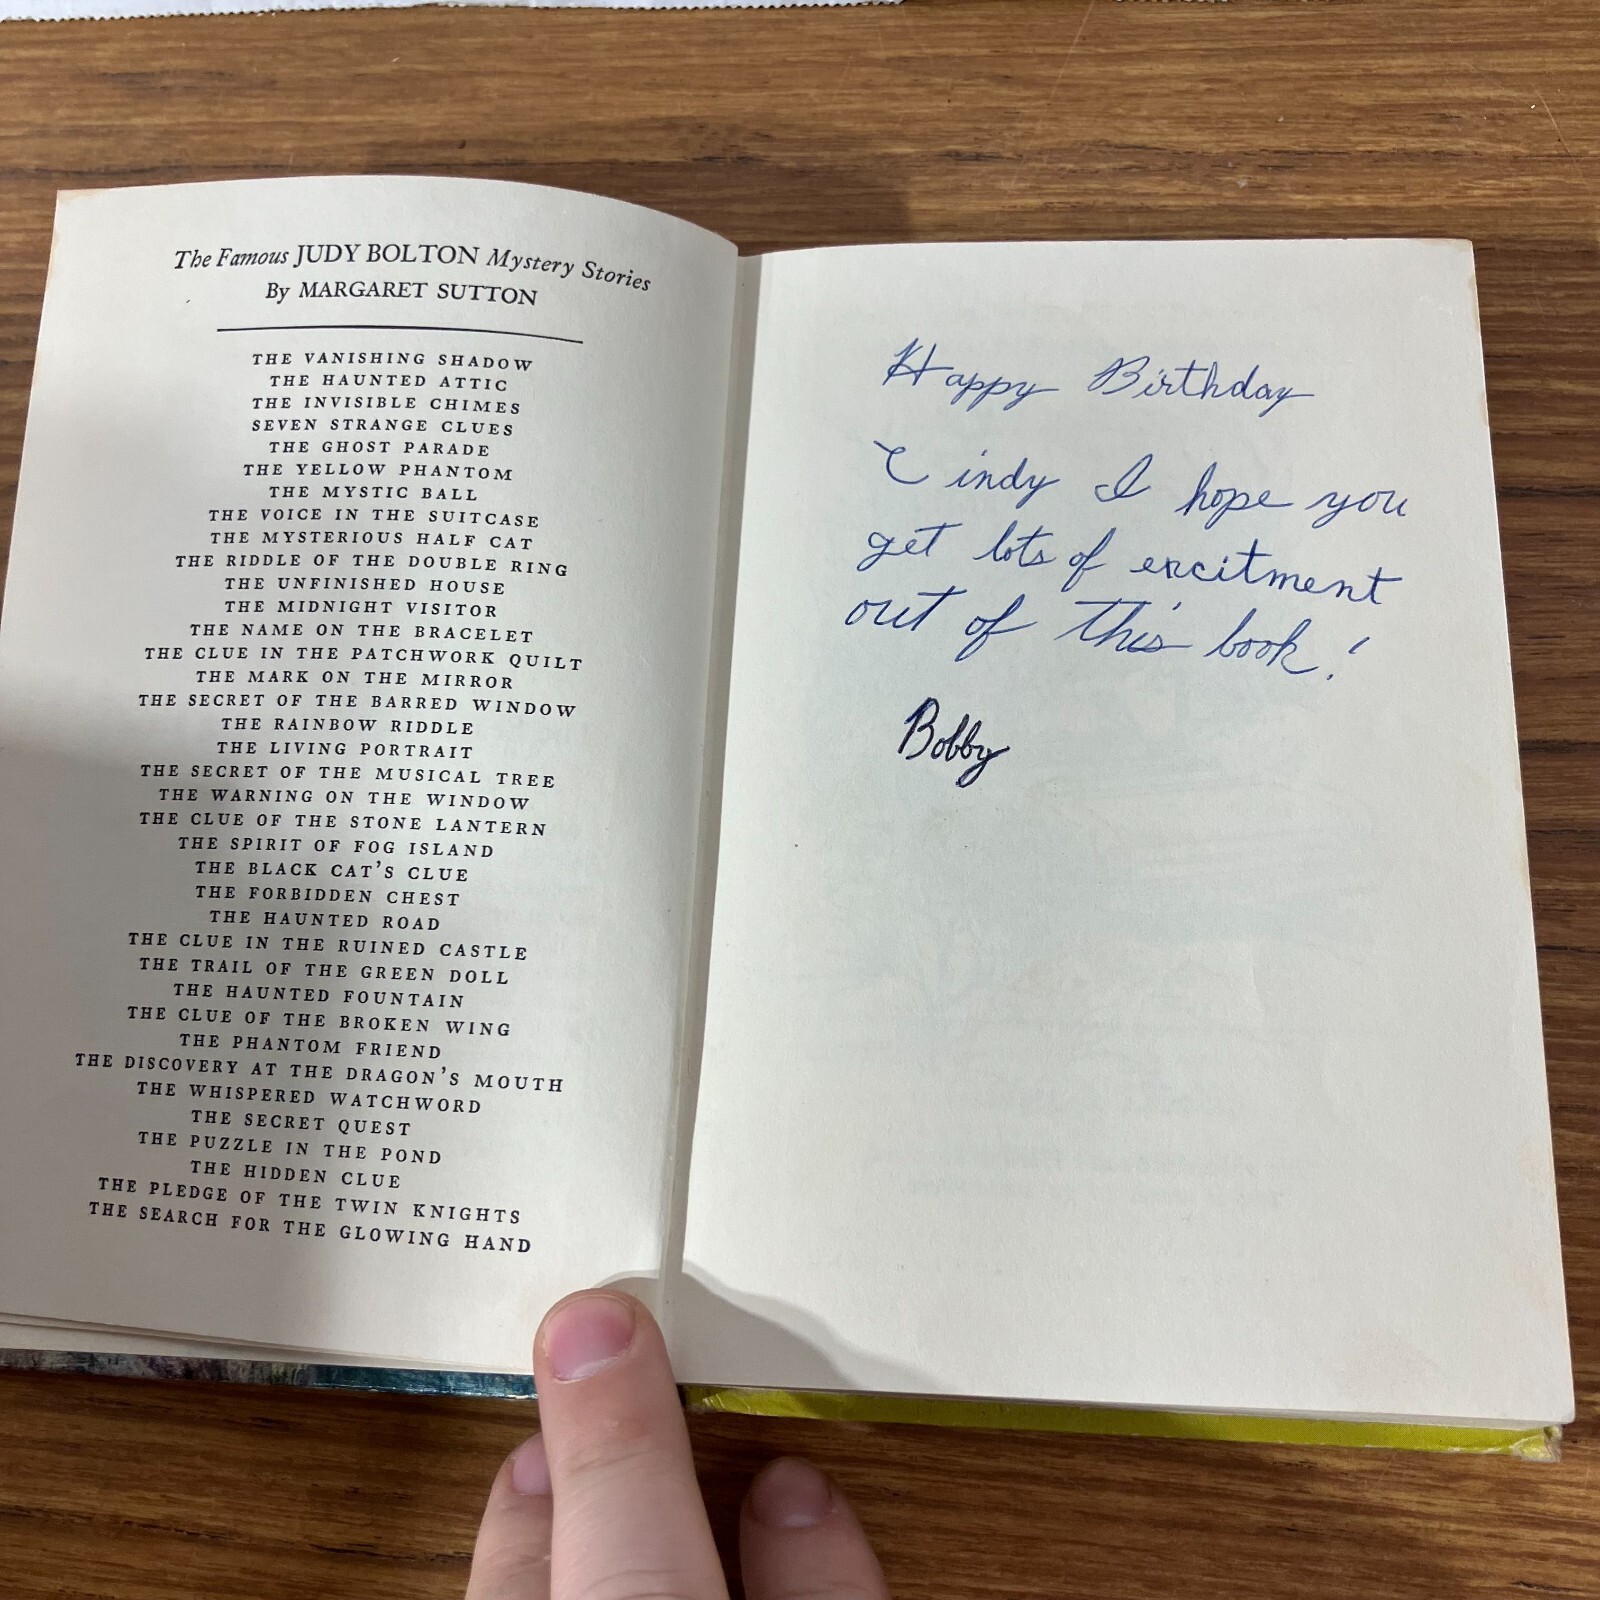 The Famous JUDY BOLTON Mystery Stories
By MARGARET SUTTON
THE VANISHING SHADOW
THE HAUNTED ATTIC
THE INVISIBLE CHIMES
SEVEN STRANGE CLUES
THE GHOST PARADE
THE YELLOW PHANTOM
THE MYSTIC BALL
THE VOICE IN THE SUITCASE
THE MYSTERIOUS HALF CAT
THE RIDDLE OF THE DOUBLE RING
THE UNFINISHED HOUSE
THE MIDNIGHT VISITOR
THE NAME ON THE BRACELET
THE CLUE IN THE PATCHWORK QUILT
THE MARK ON THE MIRROR
THE SECRET OF THE BARRED WINDOW
THE RAINBOW RIDDLE
THE LIVING PORTRAIT
THE SECRET OF THE MUSICAL TREE
THE WARNING ON THE WINDOW
THE CLUE OF THE STONE LANTERN
THE SPIRIT OF FOG ISLAND
THE BLACK CAT'S CLUE
THE FORBIDDEN CHEST
THE HAUNTED ROAD
THE CLUE IN THE RUINED CASTLE
THE TRAIL OF THE GREEN DOLL
THE HAUNTED FOUNTAIN
THE CLUE OF THE BROKEN WING
THE PHANTOM FRIEND
THE DISCOVERY AT THE DRAGON'S MOUTH
THE WHISPERED WATCHWORD
THE SECRET QUEST
THE PUZZLE IN THE POND
THE HIDDEN CLUE
THE PLEDGE OF THE TWIN KNIGHTS
THE SEARCH FOR THE GLOWING HAND
Happy Birthday
Cindy I hope you
get lots of excitment
out of this book!
Bobby